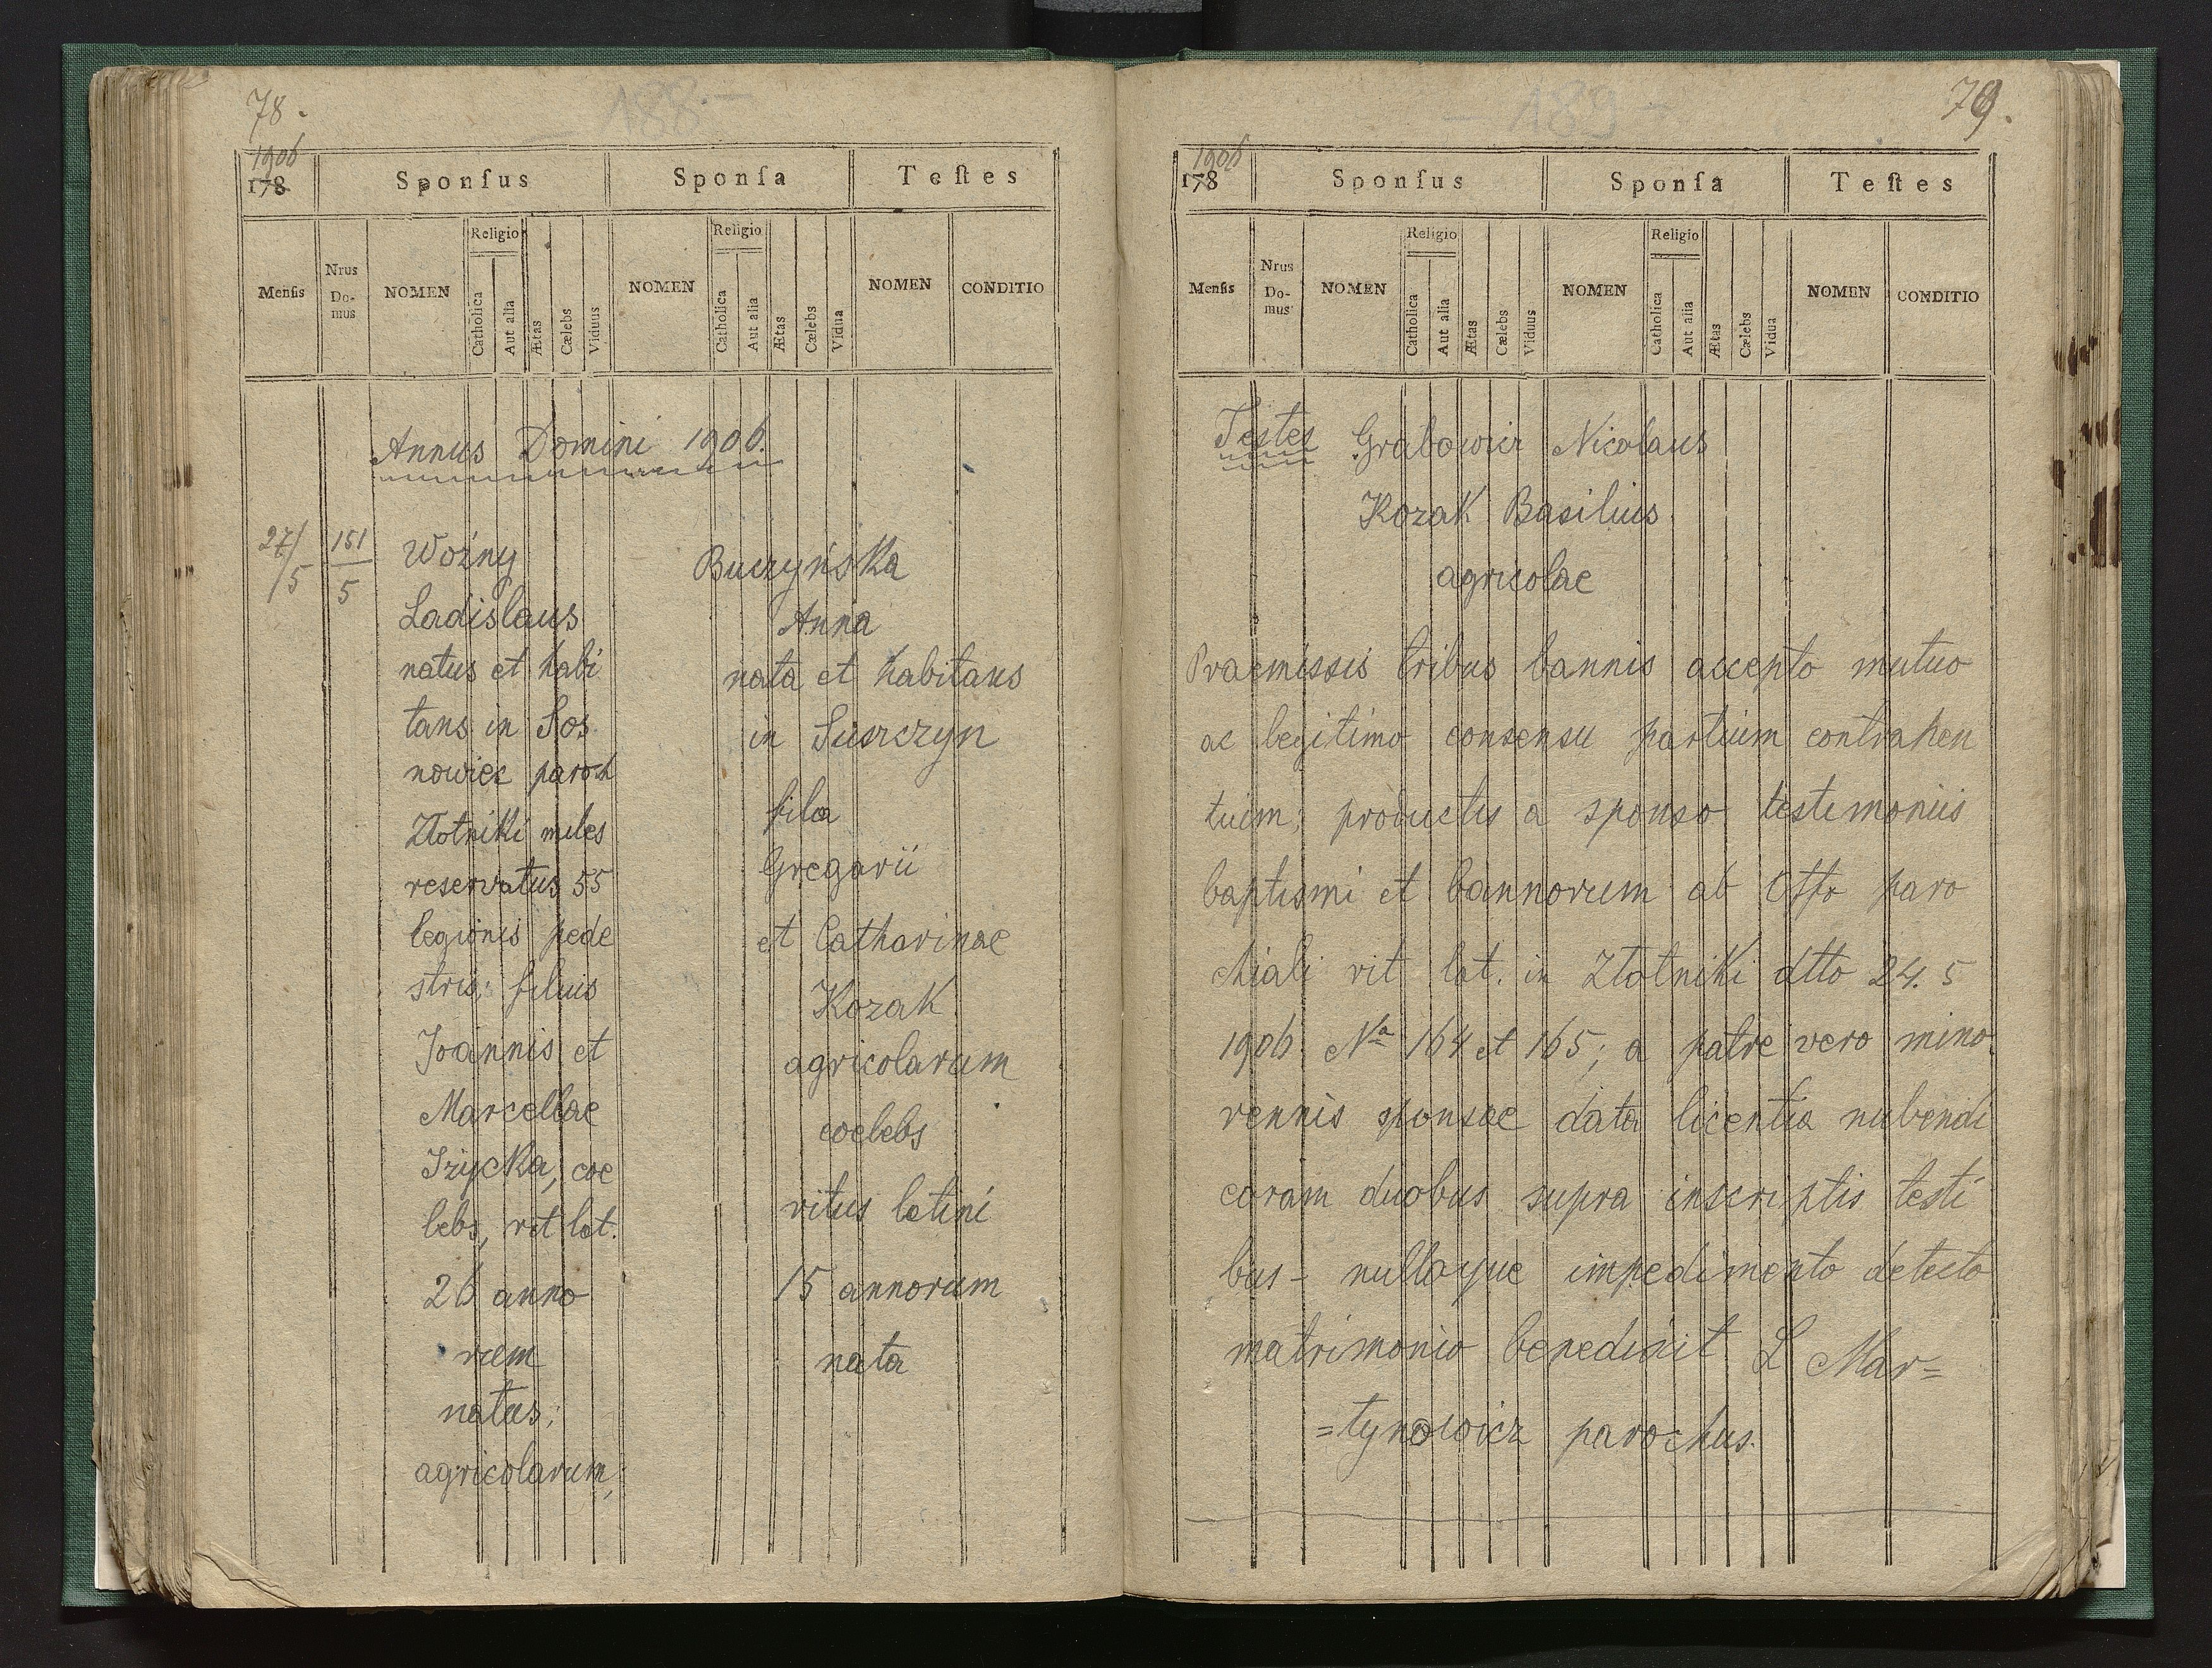 78.
188.—
1906
178
Sponſus
Sponſa
Teſtes
Menſis
Nrus
Do-
mus
NOMEN
Religio
Catholica
Aut alia
Ætas
Cælebs
Viduus
NOMEN
Religio
Catholica
Aut alia
Ætas
Cælebs
Vidua
NOMEN
CONDITIO
Annus Domini 1906.
27/5
151
5
Woźny
Ladislaus
natus et habi
tans in Sos
nowiec paroch
Złotniki miles
reservatus 55
legionis pede
stris; filius
Joannis et
Marcellae
Izycka, coe
lebs, rit lat.
26 anno
rum
natus;
agricolarum;
Buczyńska
Anna
nata et habitans
in Suszczyn
filia
Gregorii
et Catharinae
Kozak
agricolarum
coelebs
ritus latini
15 annorum
nata
79.
— 189 —
1906
178
Sponſus
Sponſa
Teſtes
Menſis
Nrus
Do-
mus
NOMEN
Religio
Catholica
Aut alia
Ætas
Cælebs
Viduus
NOMEN
Religio
Catholica
Aut alia
Ætas
Cælebs
Vidua
NOMEN
CONDITIO
Testes Grabowicz Nicolaus
Kozak Basilius
agricolae
Praemissis tribus bannis accepto mutuo
ac legitimo consensu partium contrahen
tium; productis a sponso testimoniis
baptismi et bannorum ab Offo paro
chiali rit lat. in Złotniki dtto 24. 5
1906 Na 164 et 165; a patre vero mino
rennis sponsae data licentia nubendi
coram duobus supra inscriptis testi
bus – nulloque impedimento detecto
matrimonio benedixit L Mar=
=tynowicz parochus.